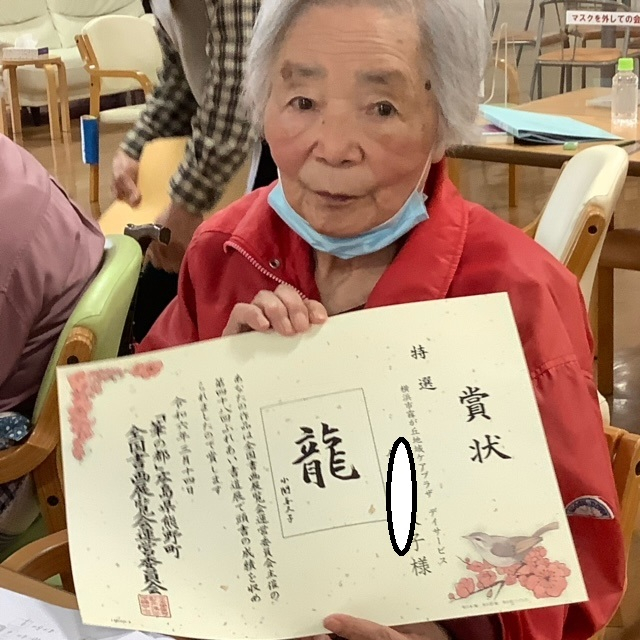 マスクを外しての会
賞状
特選
横浜市富が丘地域ケアプラザ デイサービス
子様
龍
あなたの作品は全国書画展覧会運営委員会主催の
第四八回ふれあい書道展で頭書の成績を収め
られましたので賞します
令和六年三月十四日
「筆の都」広島県熊野町
全国書画展覧会運営委員会